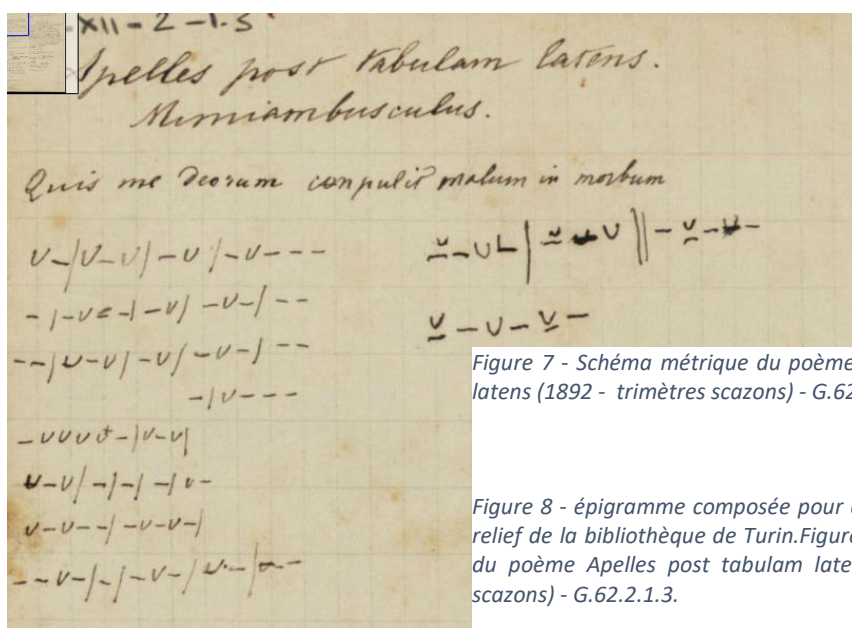 XII - 2 - 1.3
Apelles post tabulam latens.
Mimiambusculus.
Quis me deorum conpulit malum in morbum
Figure 7 - Schéma métrique du poème
latens (1892 - trimètres scazons) - G.62
Figure 8 - épigramme composée pour
relief de la bibliothèque de Turin.Figure
du poème Apelles post tabulam late
scazons) - G.62.2.1.3.